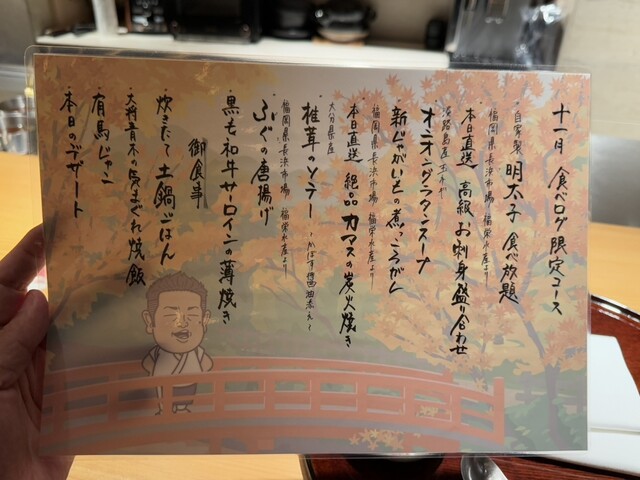 十一月 食べログ限定コース
・自家製 明太子 食べ放題
福岡県長浜市場 福栄水産より
・本日直送 高級お刺身盛り合わせ
淡路島産玉ねぎ
・オニオングラタンスープ
・新じゃがいもの煮っころがし
福岡県長浜市場 福栄水産より
・本日直送 絶品 カマスの炭火焼き
大分県産
・椎茸のソテー ~かぼす醤油添え~
福岡県長浜市場 福栄水産より
・ふぐの唐揚げ
・黒毛和牛サーロインの薄焼き
御食事
・炊きたて土鍋ごはん
・大将青木の気まぐれ焼飯
・有馬じゃこ
・本日のデザート